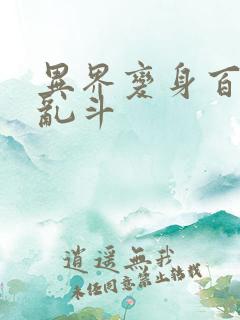 異界變身百
亂斗
逍遥無我
未任同意禁止轉載